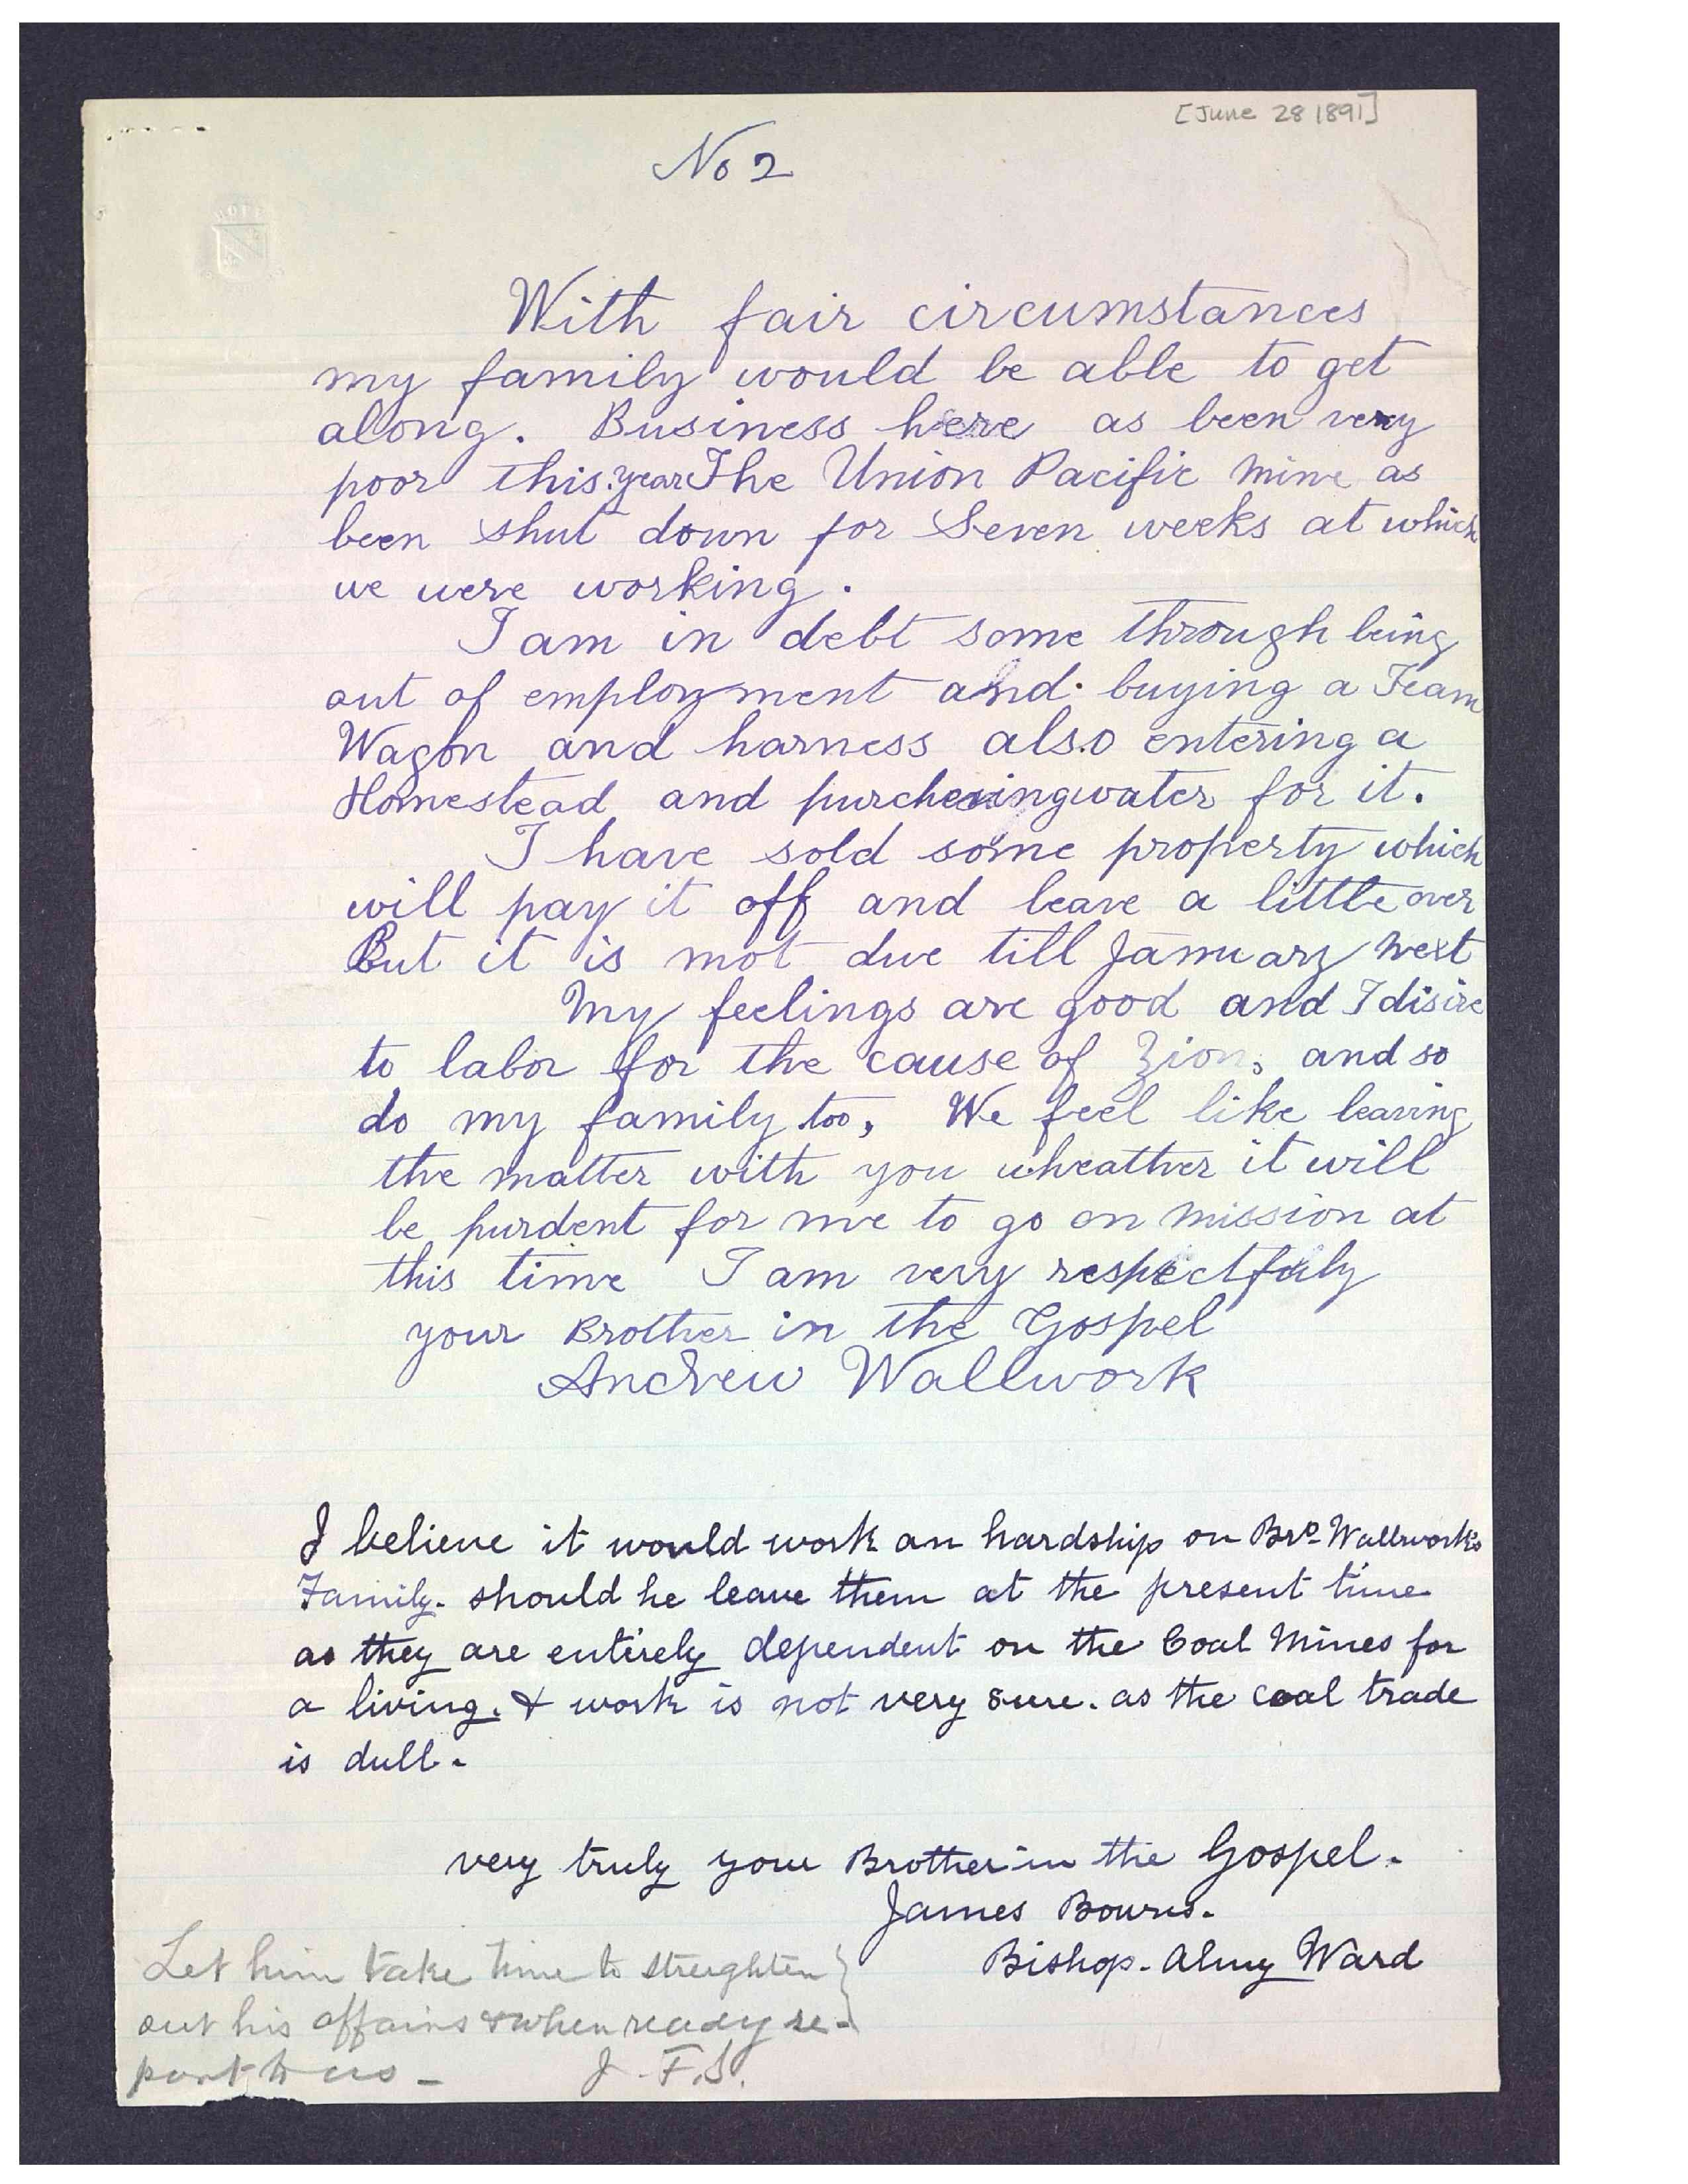 [June 28 1891]
No 2
With fair circumstances
my family would be able to get
along. Business here as been very
poor this year The Union Pacific Mine as
been shut down for Seven weeks at which
we were working.
I am in debt some through being
out of employment and buying a Team
Wagon and harness also entering a
Homestead and purchesing water for it.
I have sold some property which
will pay it off and leave a little over
But it is not due till January next
My feelings are good and I disire
to labor for the cause of Zion, and so
do my family too, We feel like leaving
the matter with you wheather it will
be purdent for me to go on mission at
this time I am very respectfuly
your Brother in the Gospel
Andrew Wallwork
I believe it would work an hardship on Bro. Wallwork's
Family. should he leave them at the present time
as they are entirely dependent on the Coal Mines for
a living. & work is not very sure. as the coal trade
is dull.
very truly your Brother in the Gospel.
James Bowns.
Bishop. Almy Ward
Let him take time to streighten
out his affairs & when ready re-
port to us –
J. F. S.